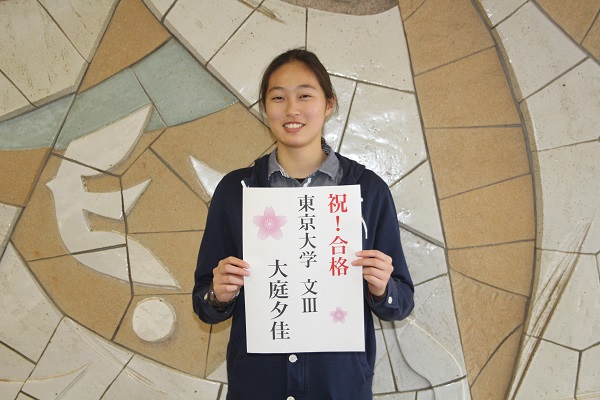 祝！合格
東京大学 文Ⅲ
大庭夕佳